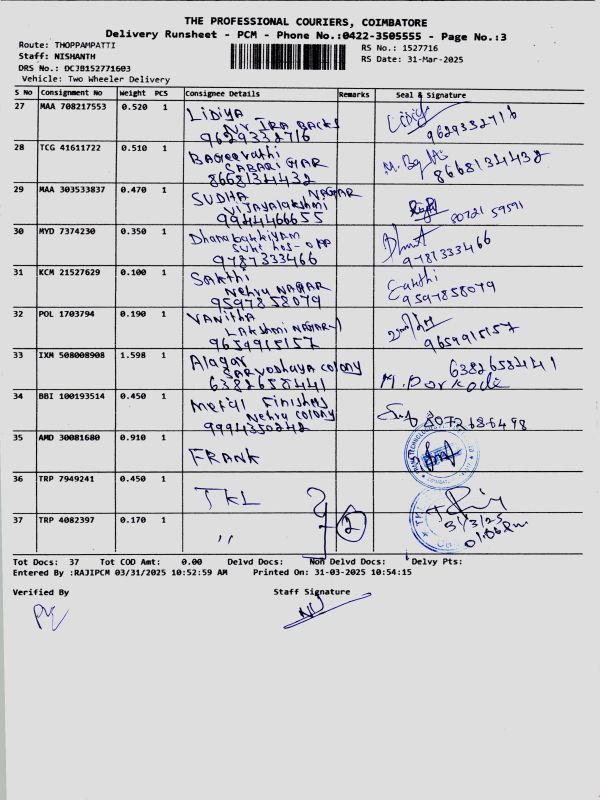 THE PROFESSIONAL COURIERS, COIMBATORE
Delivery Runsheet - PCM - Phone No.:0422-3505555 - Page No.:3
Route: THOPPAMPATTI
RS No.: 1527716
Staff: NISHANTH
RS Date: 31-Mar-2025
DRS No.: DCJB152771603
Vehicle: Two Wheeler Delivery
S No Consignment No Weight PCS Consignee Details Remarks Seal & Signature
27 MAA 708217553 0.520 1 Lidiya
9629332716 9629332716
28 TCG 41611722 0.510 1 Bageerathi
SABARI GAR
8668134432 8668134432
29 MAA 303533837 0.470 1 SUDHA NAGAR
Vijayalakshmi
9944466655 80721 59591
30 MYD 7374230 0.350 1 Dhanabakkiyam
9787333466 9787333466
31 KCM 21527629 0.100 1 Sakthi
Nehru NAGAR
9597858079 9597858079
32 POL 1703794 0.190 1 VANitha
LAKshmi NAGAR
9659915157 9659915157
33 IXM 508008908 1.598 1 Alagar
SARVODHAYA colony
6382658441 6382658441
34 BBI 100193514 0.450 1 Metal Finishers
Nehru colony
9994350242 8072686498
35 AMD 30081680 0.910 1 FRANK
36 TRP 7949241 0.450 1 TKL
37 TRP 4082397 0.170 1 ,, 2 31/3/25
01:06 Pm
Tot Docs: 37 Tot COD Amt: 0.00 Delvd Docs: Non Delvd Docs: Delvy Pts:
Entered By :RAJIPCM 03/31/2025 10:52:59 AM Printed On: 31-03-2025 10:54:15
Verified By Staff Signature